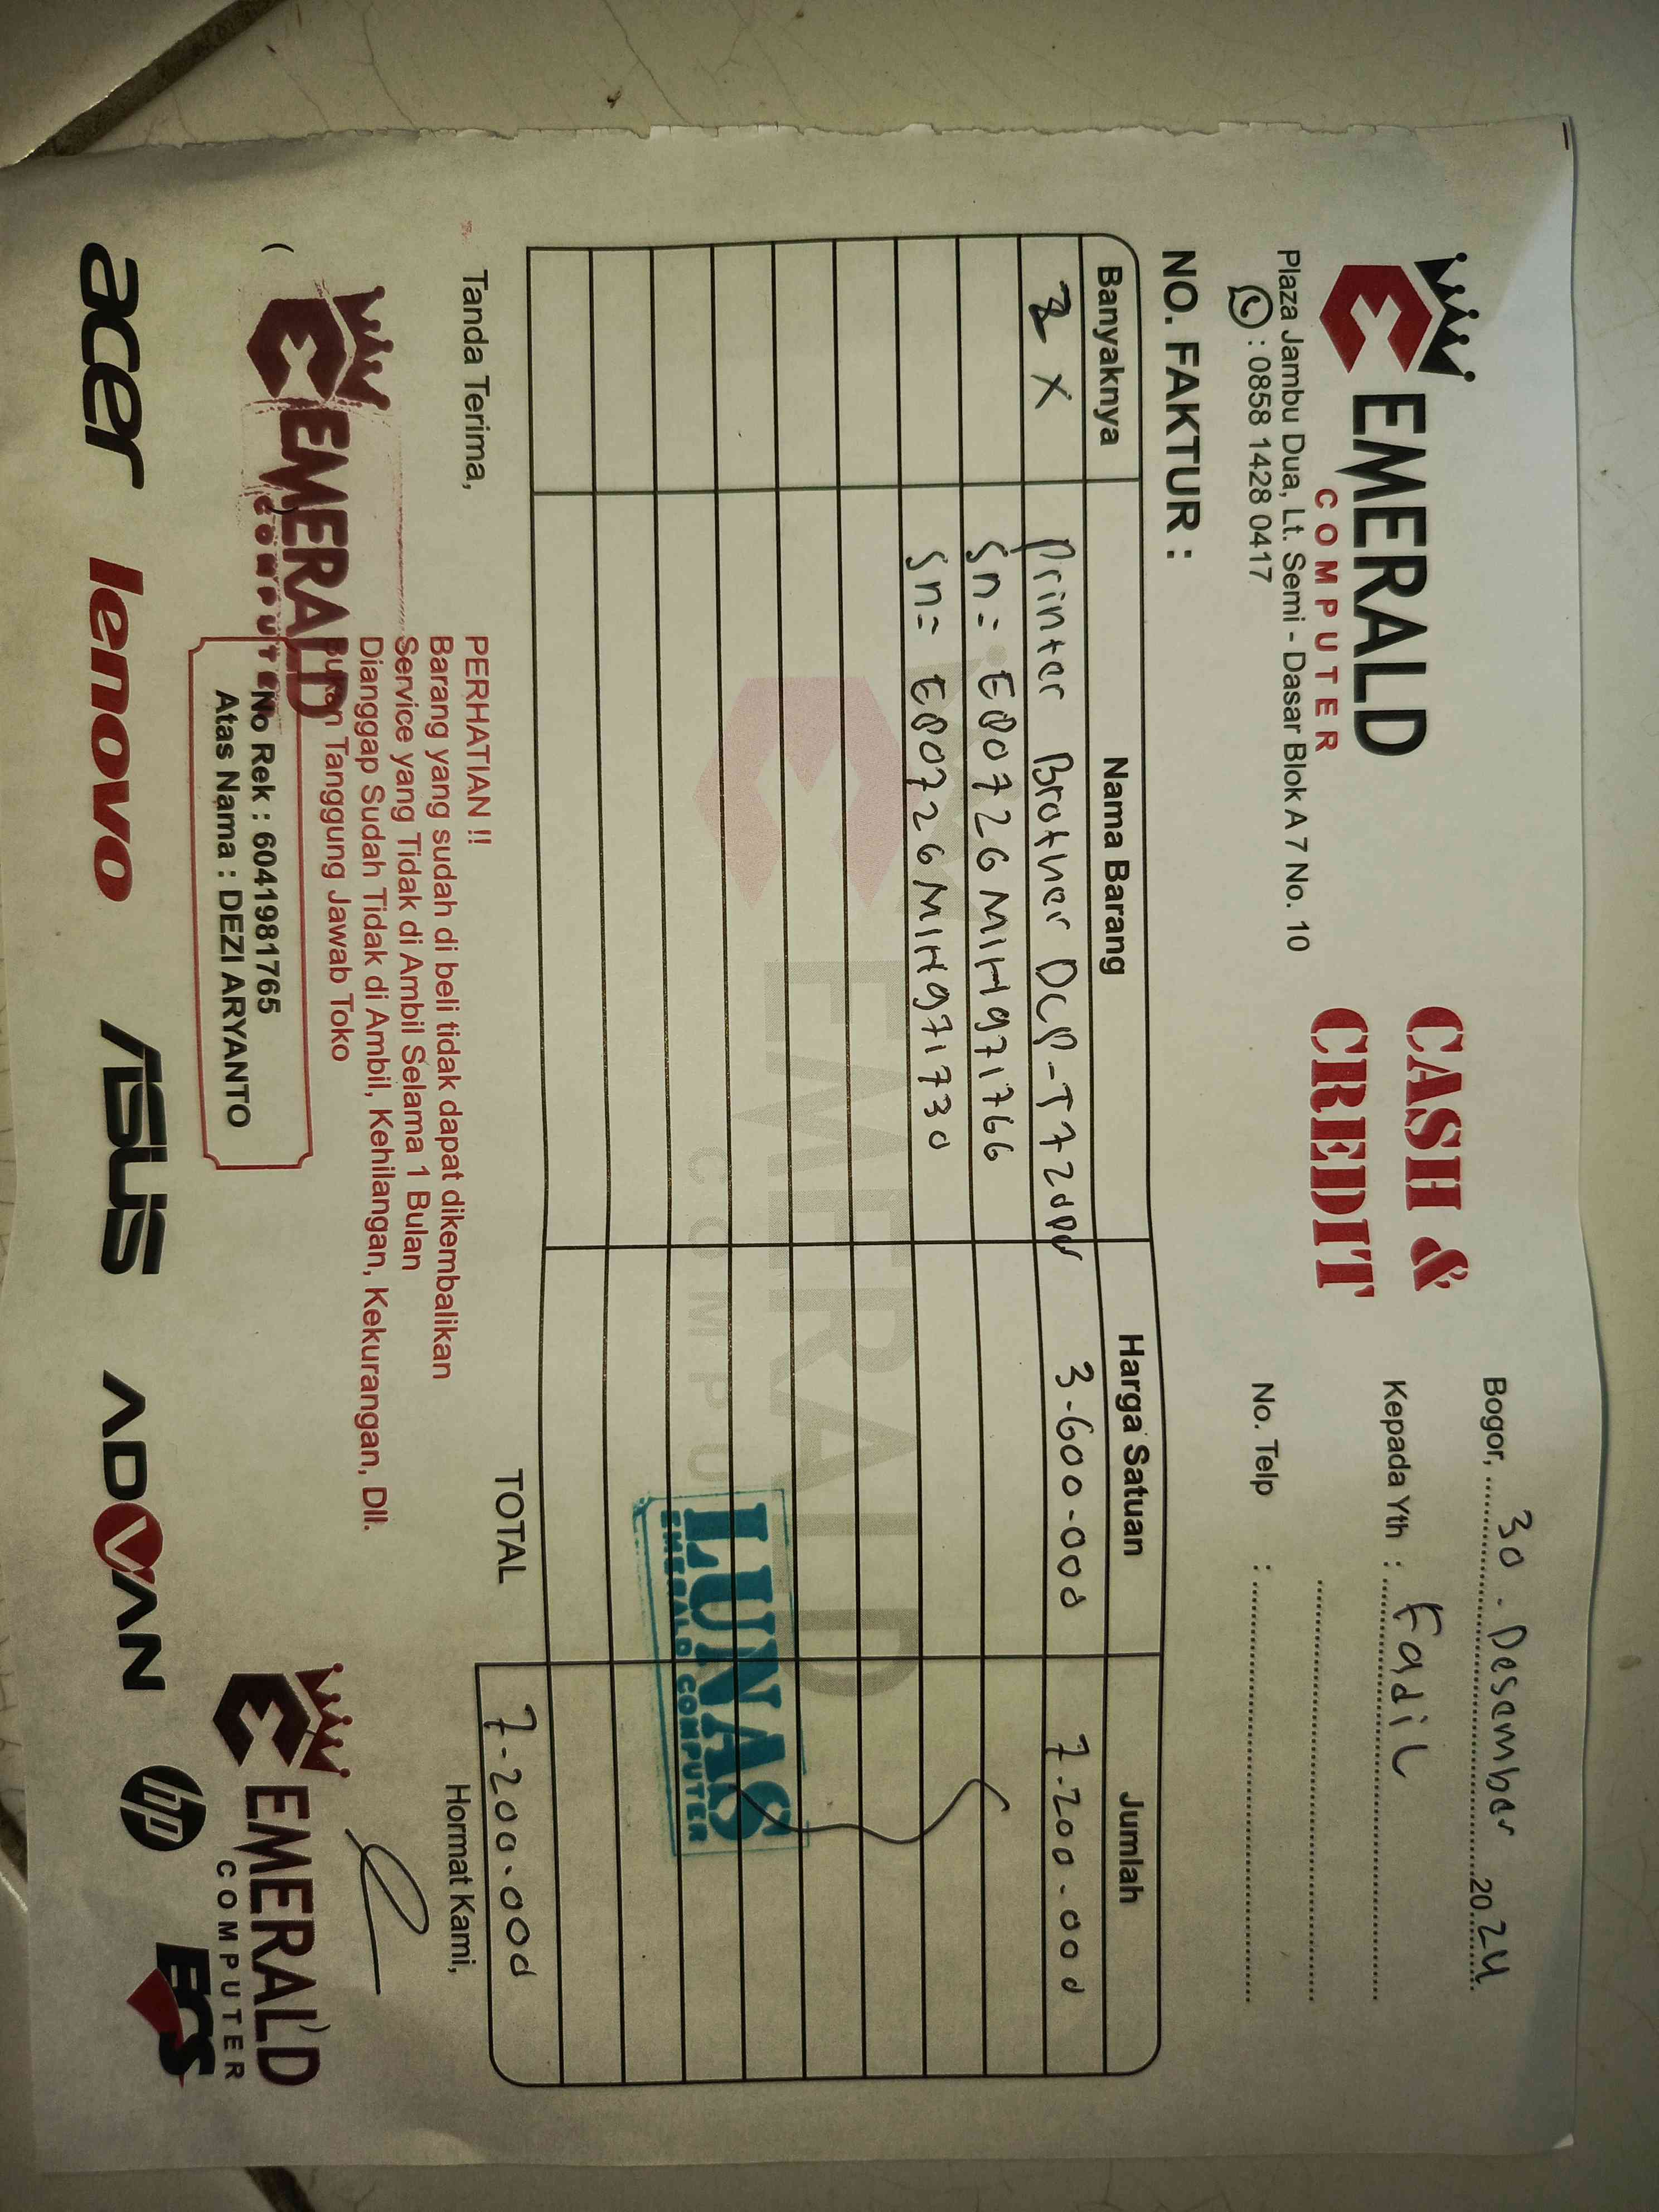 EMERALD
COMPUTER
CASH &
CREDIT
Plaza Jambu Dua, Lt. Semi - Dasar Blok A 7 No. 10
: 0858 1428 0417
Bogor, 30 - Desember 2024
Kepada Yth : Fadil
No. Telp :
NO. FAKTUR :
Banyaknya Nama Barang Harga Satuan Jumlah
2 X Printer Brother DCP-T720DW 3-600-000 7-200-000
Sn= E80726M1H971766
Sn= E80726M1H971730
EMERALD
COMPUTER
LUNAS
EMERALD COMPUTER
TOTAL 7-200-000
Tanda Terima,
Hormat Kami,
PERHATIAN !!
Barang yang sudah di beli tidak dapat dikembalikan
Service yang Tidak di Ambil Selama 1 Bulan
Dianggap Sudah Tidak di Ambil, Kehilangan, Kekurangan, Dll.
Bukan Tanggung Jawab Toko
EMERALD
COMPUTER
No Rek : 6041981765
Atas Nama : DEZI ARYANTO
EMERALD
COMPUTER
acer lenovo ASUS ADVAN hp ECS